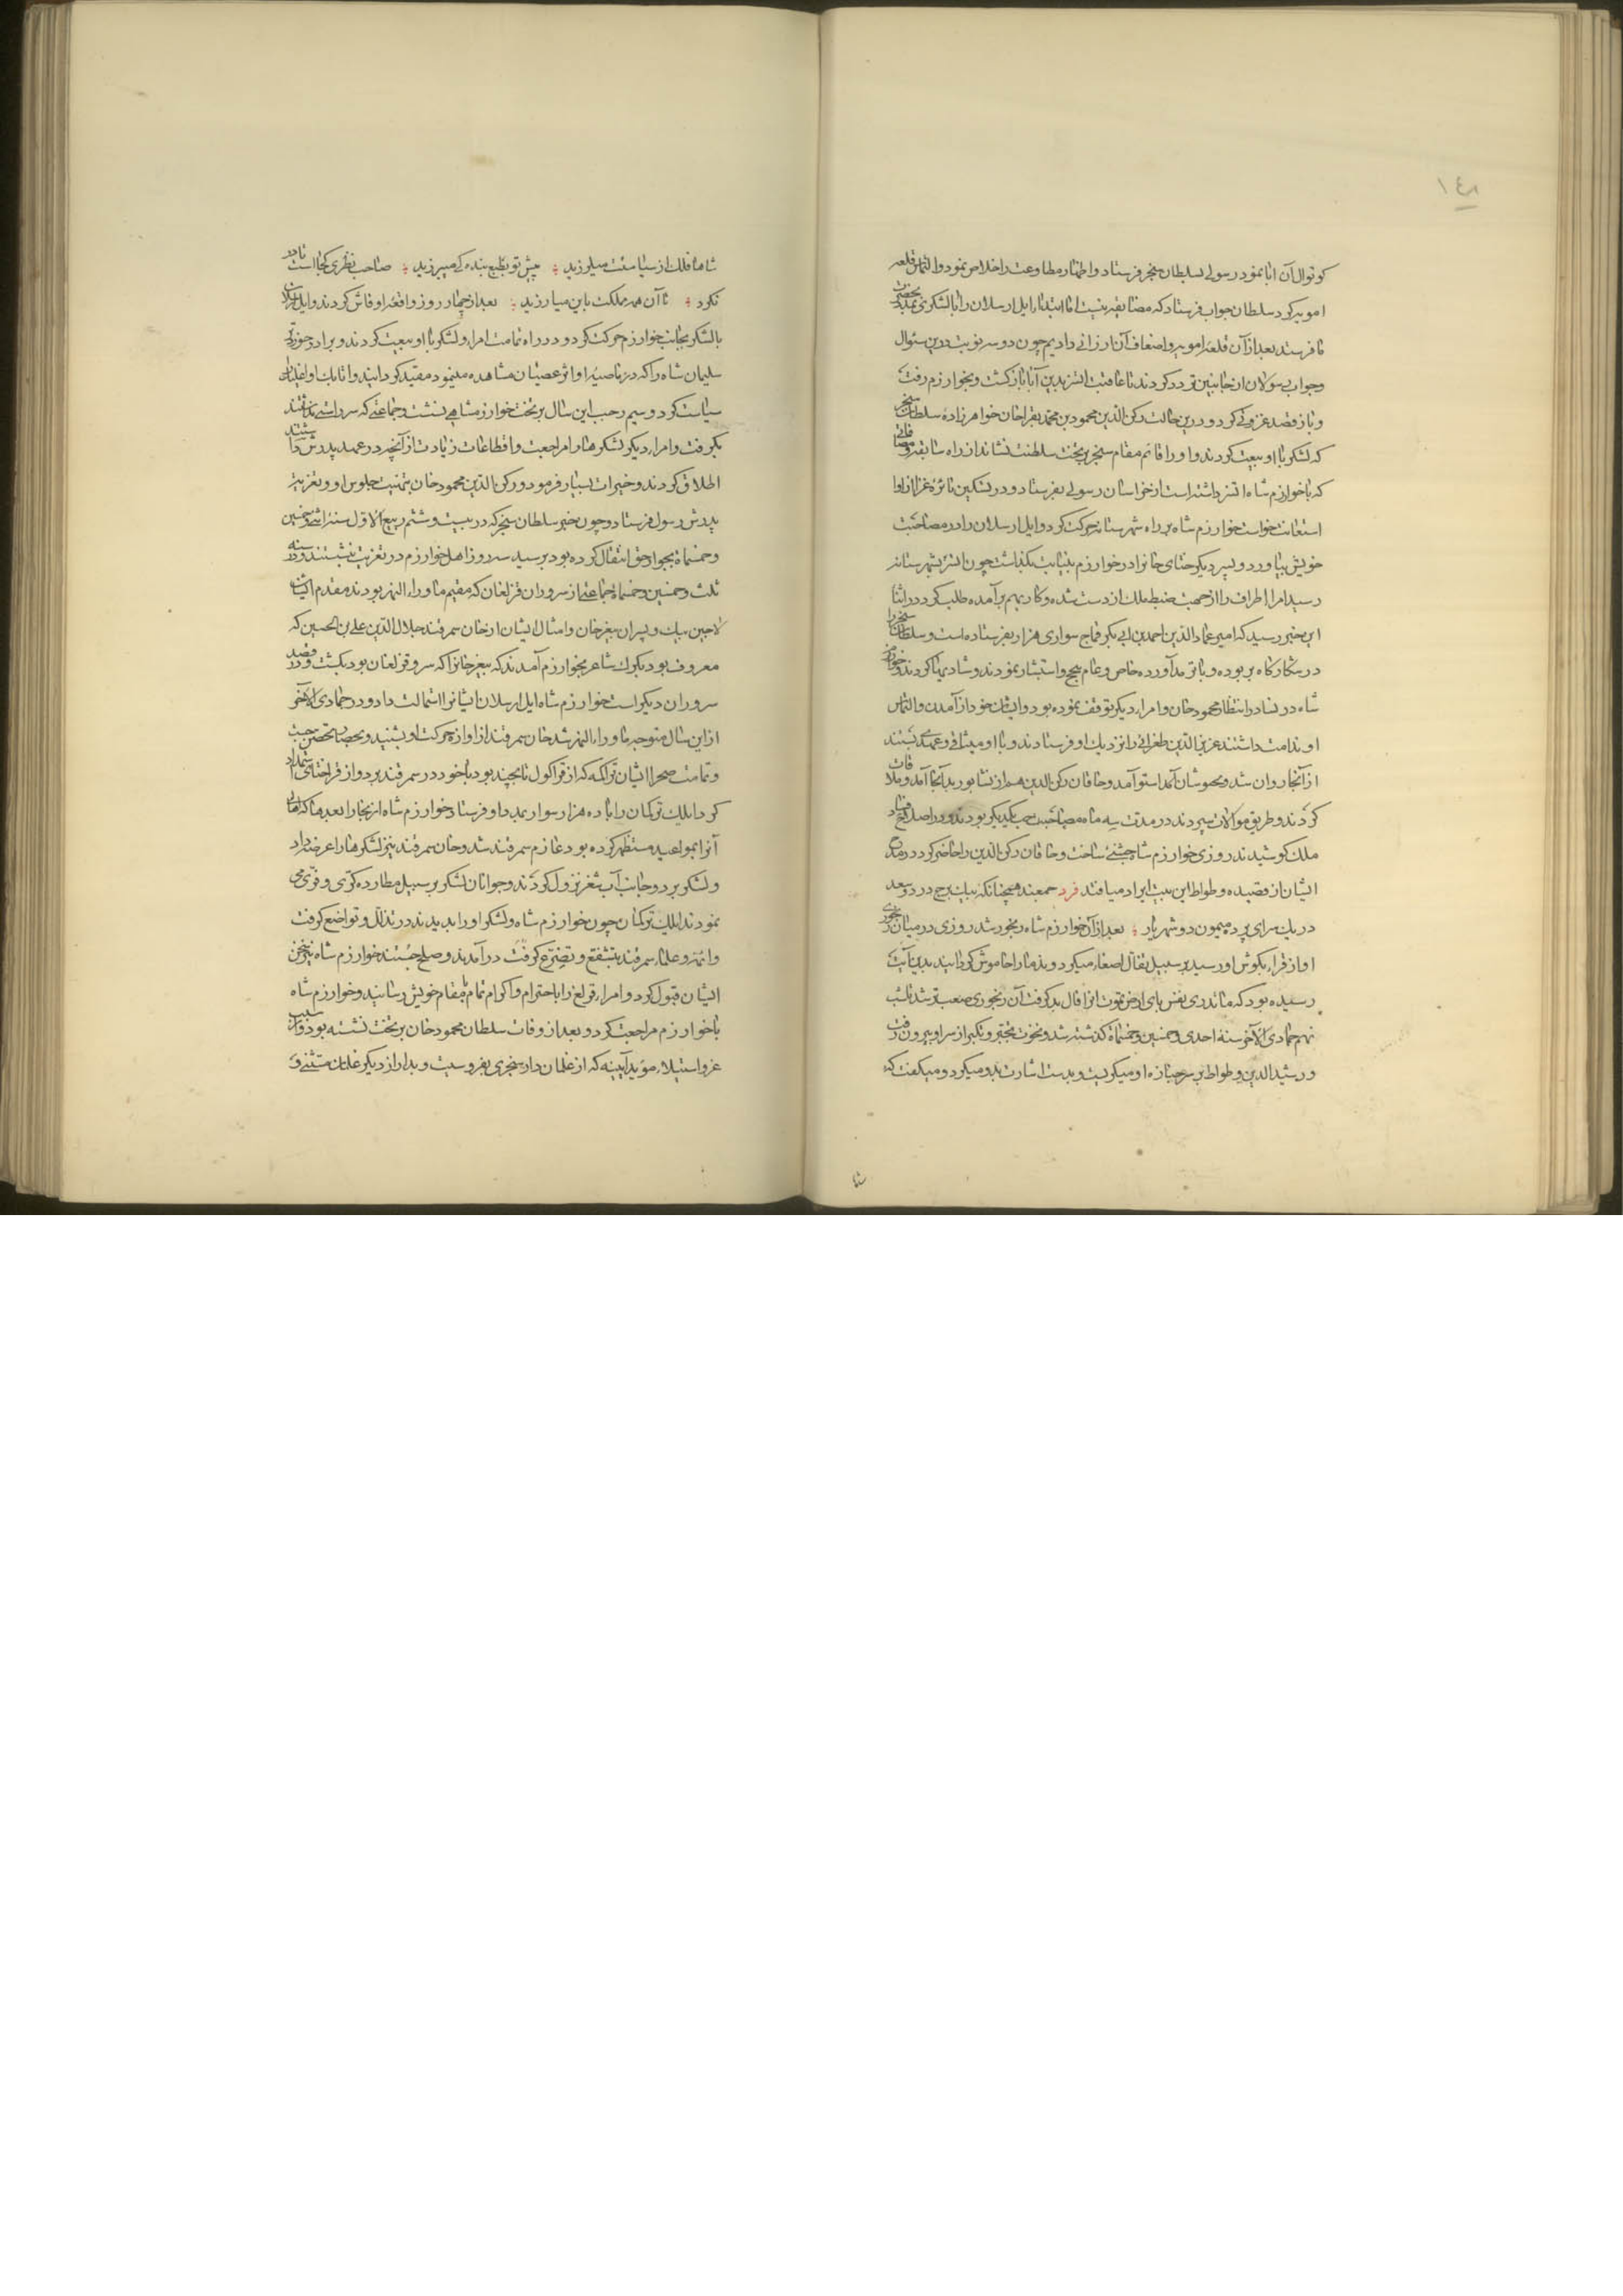 ١٤٨
کوتوال آن ابا نمود رسولی بسلطان سنجر فرستاد و اظهار مطاوعت و اخلاص نمود و التماس قلعه
امویه کرد سلطان جواب فرستاد که مضایقه نیست اما ابتدا ایل ارسلان را با لشکری بمدد بحضرت
ما فرستد بعد از آن قلعه امویه و اضعاف آن ارزانی داریم چون دو سه نوبت درین سئوال
و جواب رسولان از جانبین تردد کردند تا عاقبت اتسز بدین ابا بازگشت و بخوارزم رفت
و باز قصد غزوی کرد و درین حالت رکن الدین محمود بن محمد بغراخان خواهرزاده سلطان سنجر
که لشکر با او بیعت کردند و او را قائم مقام سنجر بر تخت سلطنت نشاند از راه سابقه و مصافاتی
که با خوارزم شاه اتسز داشته است از خراسان رسولی بفرستاد و در تسکین نائره غز ازو
استعانت خواست خوارزم شاه بر راه شهرستانه حرکت کرد و ایل ارسلان را در مصاحبت
خویش بیاورد و پسر دیگر ختای خانرا در خوارزم بنیابت بگذاشت چون اتسز بشهرستانه
رسید امراء اطراف را از جهت ضبط ملک از دست شده و کار بهم برآمده طلب کرد در اثنا
این خبر رسید که امیر عماد الدین احمد بن ابی بکر قماج سواری هزار بفرستاده است و سلطان سنجر را
در شکارگاه بر بوده و با ترمد آورده خاص و عام بهج و استبشار نمودند و شادیها کردند و خوارزم
شاه در نسا در انتظار محمود خان و امراء دیگر توقف نموده بود و ایشان خود از آمدن و التماس
او ندامت داشتند عزیز الدین طغرائی را نزدیک او فرستادند و با او میثاقی و عهدی بستند
از آنجا روان شد و بخبوشان آمد استوا آمد و خاقان رکن الدین هم از نشابور بدانجا آمد و ملاقات
کردند و طریق موالات سپردند در مدت سه ماه مصاحب یکدیگر بودند و در اصلاح فساد
ملک کوشیدند روزی خوارزم شاه جشنی ساخت و خاقان رکن الدین را حاضر کرد در مدح
ایشان از قصیده وطواط این بیت ایراد میافتد فرد جمعند همچنانکه بیک برج در دو سعد
در یک سرای پرده میمون دو شهریار ؛ بعد از آن خوارزم شاه رنجور شد روزی در میان رنجوری
اواز قراء بگوش او رسید بر سبیل تفأل اصغاء میکرد و ندما را خاموش گردانید بدین آیت
رسیده بود که ما تدری نفس بای ارض تموت انرا فال بد گرفت آن رنجوری صعب تر شد تا شب
نهم جمادی الآخر سنة احدی و خمسین و خمسمائة گذشته شد و نخوت تجبر و تکبر از سر او بیرون رفت
و رشید الدین وطواط بر سر جنازه او میگریست و بدست اشارت بدو میکرد و میگفت که
شاها
شاها فلک از سیاست میلرزید ؛ پیش تو بطبع بنده کی میورزید ؛ صاحب نظری کجاست تا در
نگرد ؛ تا آن همه مملکت باین میارزید ؛ بعد از چهار روز واقعه او فاش کردند و ایل ارسلان
با لشکر بجانب خوارزم حرکت کرد و در راه تمامت امراء و لشکر با او بیعت کردند و برادر خود
سلیمان شاه را که در ناصیه او اثر عصیان مشاهده مینمود مقید گردانید و اتابک او اغلبک را
سیاست کرد و سیم رجب این سال بر تخت خوارزمشاهی نشست و جماعتی که سر داشتند
بگرفت و امراء دیگر لشکرها را مراجعت و اقطاعات زیادت از آنچه در عهد پدرش داشتند
اطلاق کردند و خیرات بسیار فرمود و رکن الدین محمود خان بتهنیت جلوس او و تعزیت
پدرش رسول فرستاد و چون خبر سلطان سنجر که در بیست و ششم ربیع الاول سنة اثنی و خمسین
و خمسمائة بجوار حق انتقال کرده بود برسید سه روز اهل خوارزم در تعزیت بنشستند و در سنه
ثلث و خمسین و خمسمائة جماعتی از سروران قرلغان که مقیم ماوراء النهر بودند مقدم ایشان
لاجین بیک و پسران بیغو خان و امثال ایشان از خان سمرقند جلال الدین علی بن الحسین که
معروف بود بکوک ساغر بخوارزم آمدند که بیغو خانرا که سرور قرلغان بود بکشت و در قصد
سروران دیگر است خوارزم شاه ایل ارسلان ایشانرا استمالت داد و در جمادی الآخر
از این سال متوجه ماوراء النهر شد خان سمرقند از اوازه حرکت او بشنید و بحصار تحصن جست
و تمامت صحرانشینان تراکمه که از قراکول تا بجند بود با خود در سمرقند برد و از قراختای استمداد
کرد ایلک ترکمان را با ده هزار سوار بمدد او فرستاد خوارزم شاه از بخارا بعد ما که اهالی
آنرا بمواعید مستظهر کرده بود عازم سمرقند شد و خان سمرقند نیز لشکرها را عرضه داد
و لشکر بر دو جانب آب سغد نزول کردند و جوانان لشکر بر سبیل مطارده کری و فری می
نمودند ایلک ترکمان چون خوارزم شاه و لشکر او را بدیدند در تذلل و تواضع گرفت
و ائمه و علماء سمرقند بتشفع و تضرع گرفت درآمدند و صلح جستند خوارزم شاه نیز سخن
ایشان قبول کرد و امراء قرلغ را با احترام و اکرام تمام بمقام خویش رسانید و خوارزم شاه
با خوارزم مراجعت کرد و بعد از وفات سلطان محمود خان بر تخت نشسته بود و از سبب
غز و استیلاء موید آیینه که از غلمان دار سنجری بفروسیت و بدار از دیگر غلمان مستثنی و